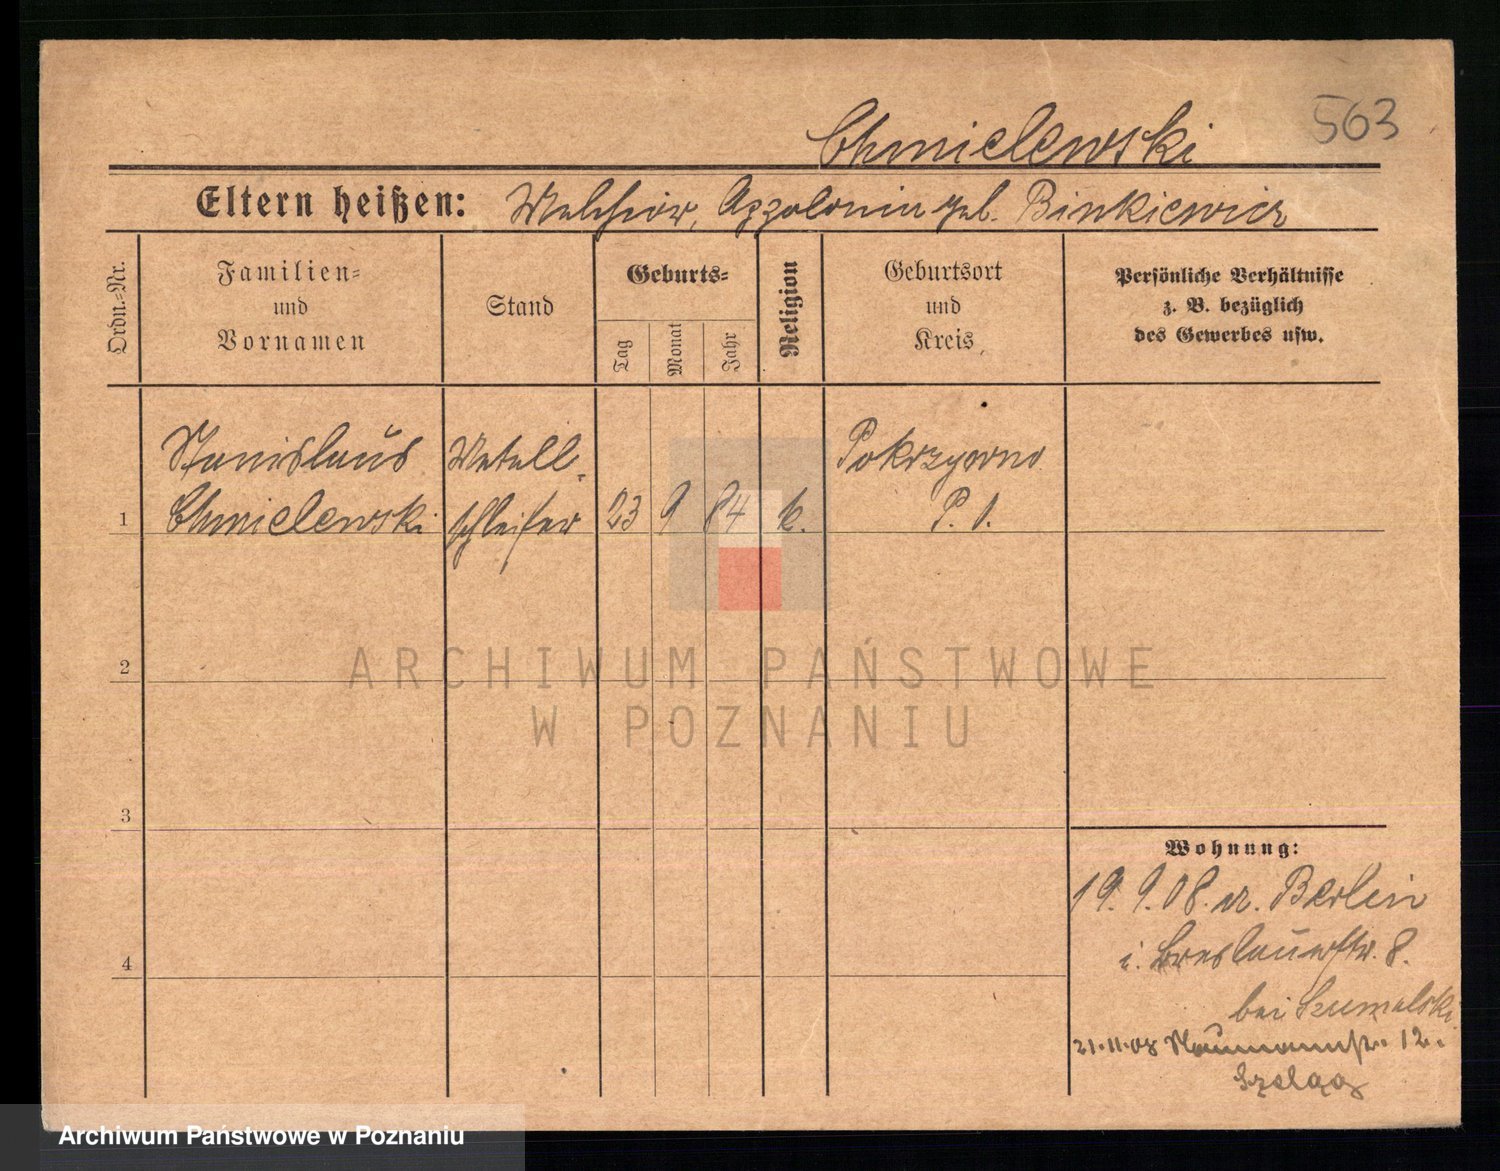 563
Chmielewski
Eltern heißen: Melchior, Appolonia geb. Binkiewicz
Ordn.-Nr.
Familien-
und
Vornamen
Stand
Geburts-
Tag
Monat
Jahr
Religion
Geburtsort
und
Kreis
Persönliche Verhältnisse
z. B. bezüglich
des Gewerbes usw.
Stanislaus Metall- Pokrzywno
1 Chmielewski schleifer 23 9 84 k. P. O.
2
3
4
Wohnung:
19. 9. 08. v. Berlin
i. Breslauerstr. 8.
bei
21.11.08 Naumannstr. 12.
ARCHIWUM PAŃSTWOWE
W POZNANIU
Archiwum Państwowe w Poznaniu